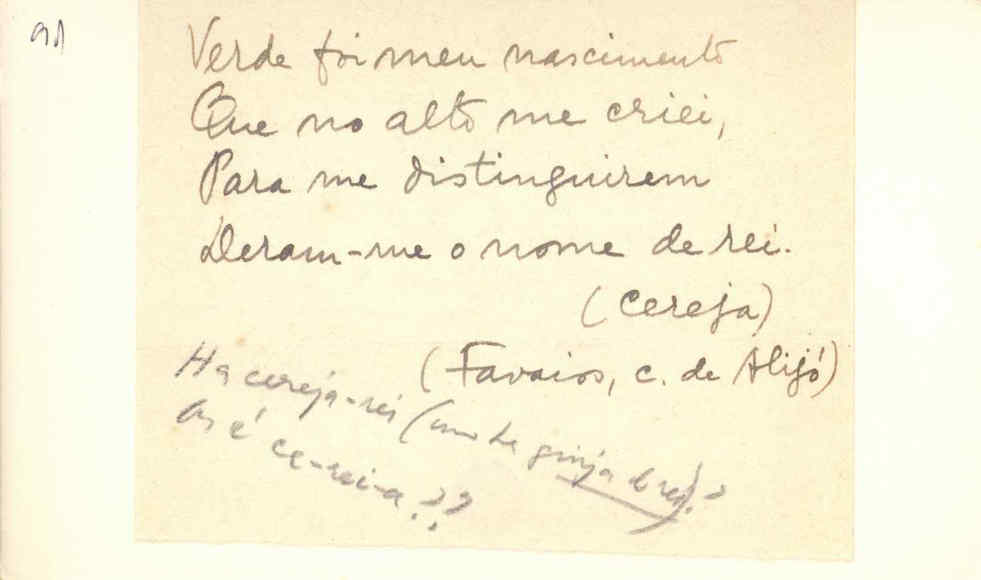 Verde foi meu nascimento
Que no alto me criei,
Para me distinguirem
Deram-me o nome de rei.
(Cereja)
(Favaios, c. de Alijó)
Ha cereja-rei (como ha ginja de rei)?
Ou é ce-rei-a??